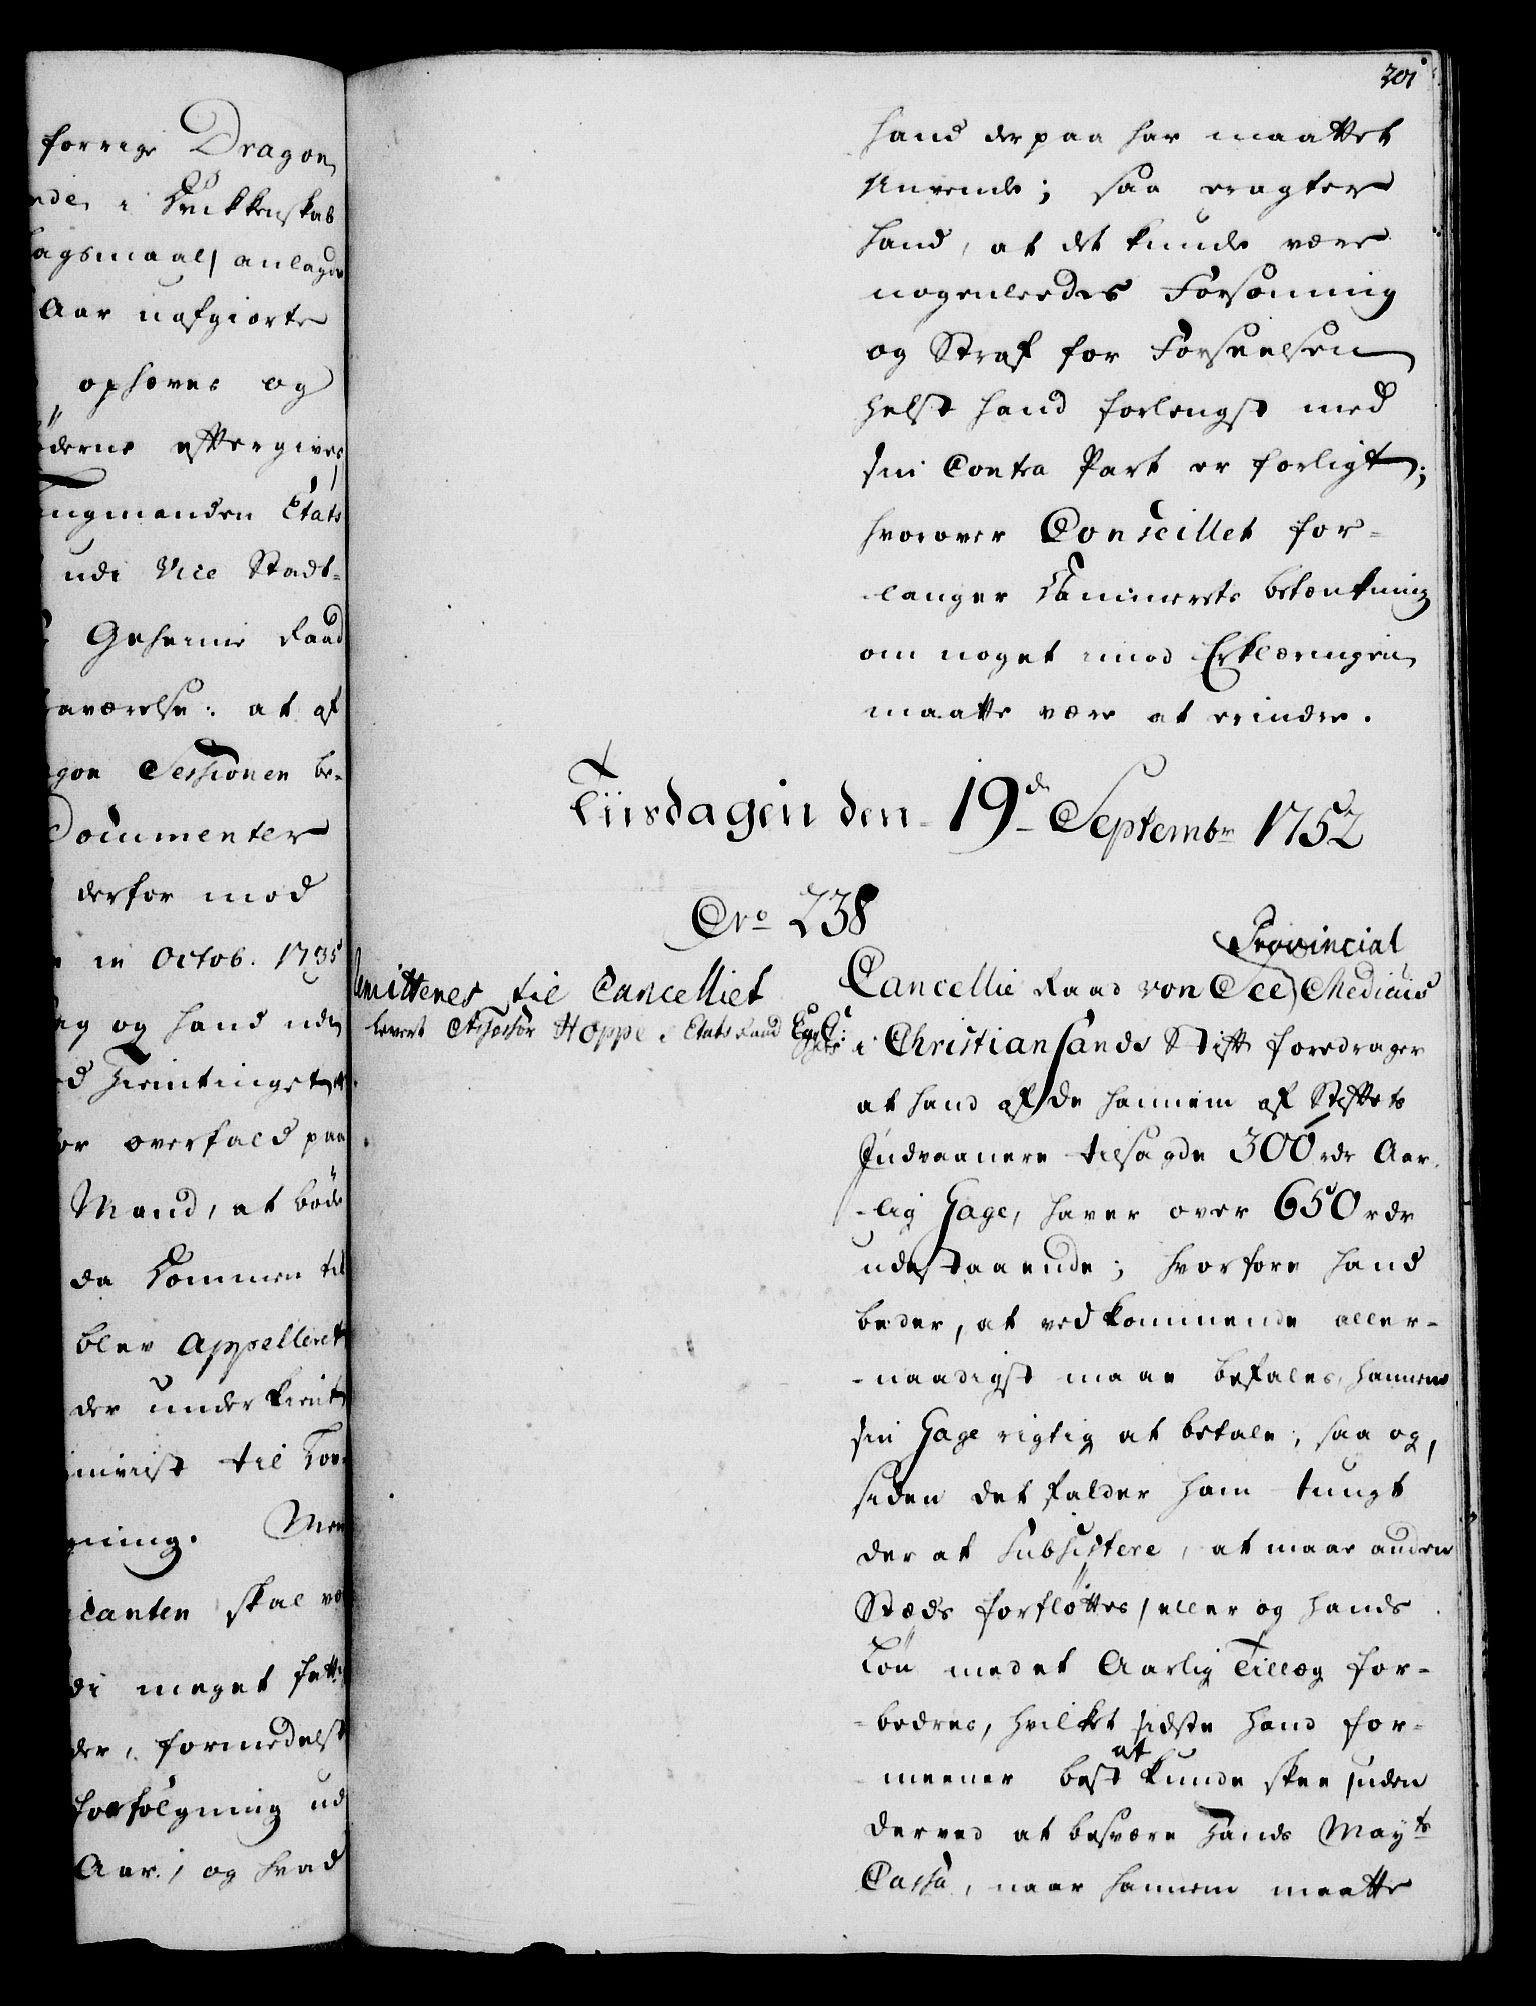 forrige Dragon
nde i Drikkenskab
agsmaal/ anlagde
Aar uafgiorte
ophæves og
derne eftergives
ngmanden Etats
udi Vice Stadt-
Geheime Raad
aværelse: at af
gon Sessionen be-
Documenter
derfor mod
in Octob. 1735
og hand uden
d Hiemtinget
or overfald paa
Mand, at böde
da Kommen til
blev appelleret
der underkient
til
ning. Men
canten skal væ
di meget fatt
der, formedelst
forfölgning ud
Aar; og hvad
201
hand derpaa har maattet
Anvende; saa eragter
hand, at det kunde være
nogenleedes Forsoning
og Straf for Forseelsen
helst hand forlengst med
sin Contra Part er forligt;
hvorover Conseillet for-
langer Kammerets betænkning
om noget imod Erklæringen
maatte være at erindre.
Tiirsdagen den 19de Septembr 1752
No 238
Remitteres til Cancelliet
levert Assessor Hoppe i Etats Raad
Provincial
Cancellie Raad von See Medicus
i Christiansands Stift foredrager
at hand af de hannem af Stiftets
Indvaanere tilsagde 300 rdr Aar-
-lig Gage, haver over 650 rdr
udestaaende; hvorfore hand
beder, at vedkommende aller-
-naadigst maae befales, hannem
sin Gage rigtig at betale, saa og,
siden det falder ham tungt
der at Subsistere, at maae anden
Stæds forflöttes, eller og hands
Lön med et Aarlig Tillæg for-
-bedres, hvilket sidste hand for-
meener best at kunde skee, uden
derved at besvære Hands Mayts
Cassa, naar hannem maatte